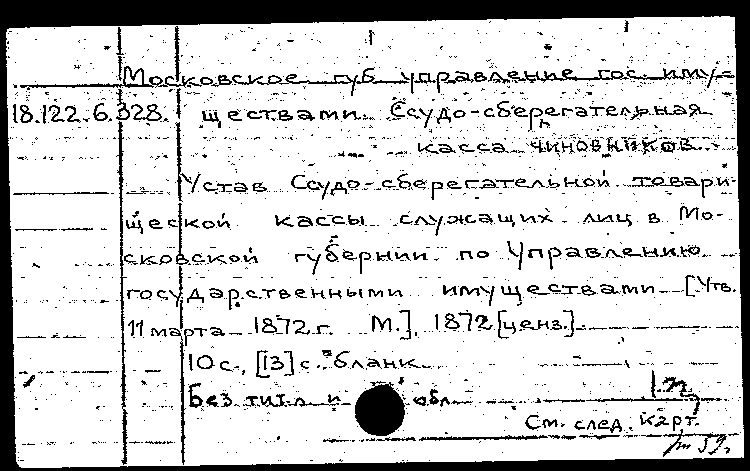 Московское губ. управление гос. иму-
18.122.6.328. ществами. Ссудо-сберегательная
касса чиновников.
Устав Ссудо-сберегательной товари-
щеской кассы служащих лиц в Мо-
сковской губернии по Управлению
государственными имуществами [Утв.
11 марта 1872 г. М.], 1872 [ценз.].
10 с., [13] с. бланк.
Без тит. л и обл.
1 п
См. след. карт.
59г